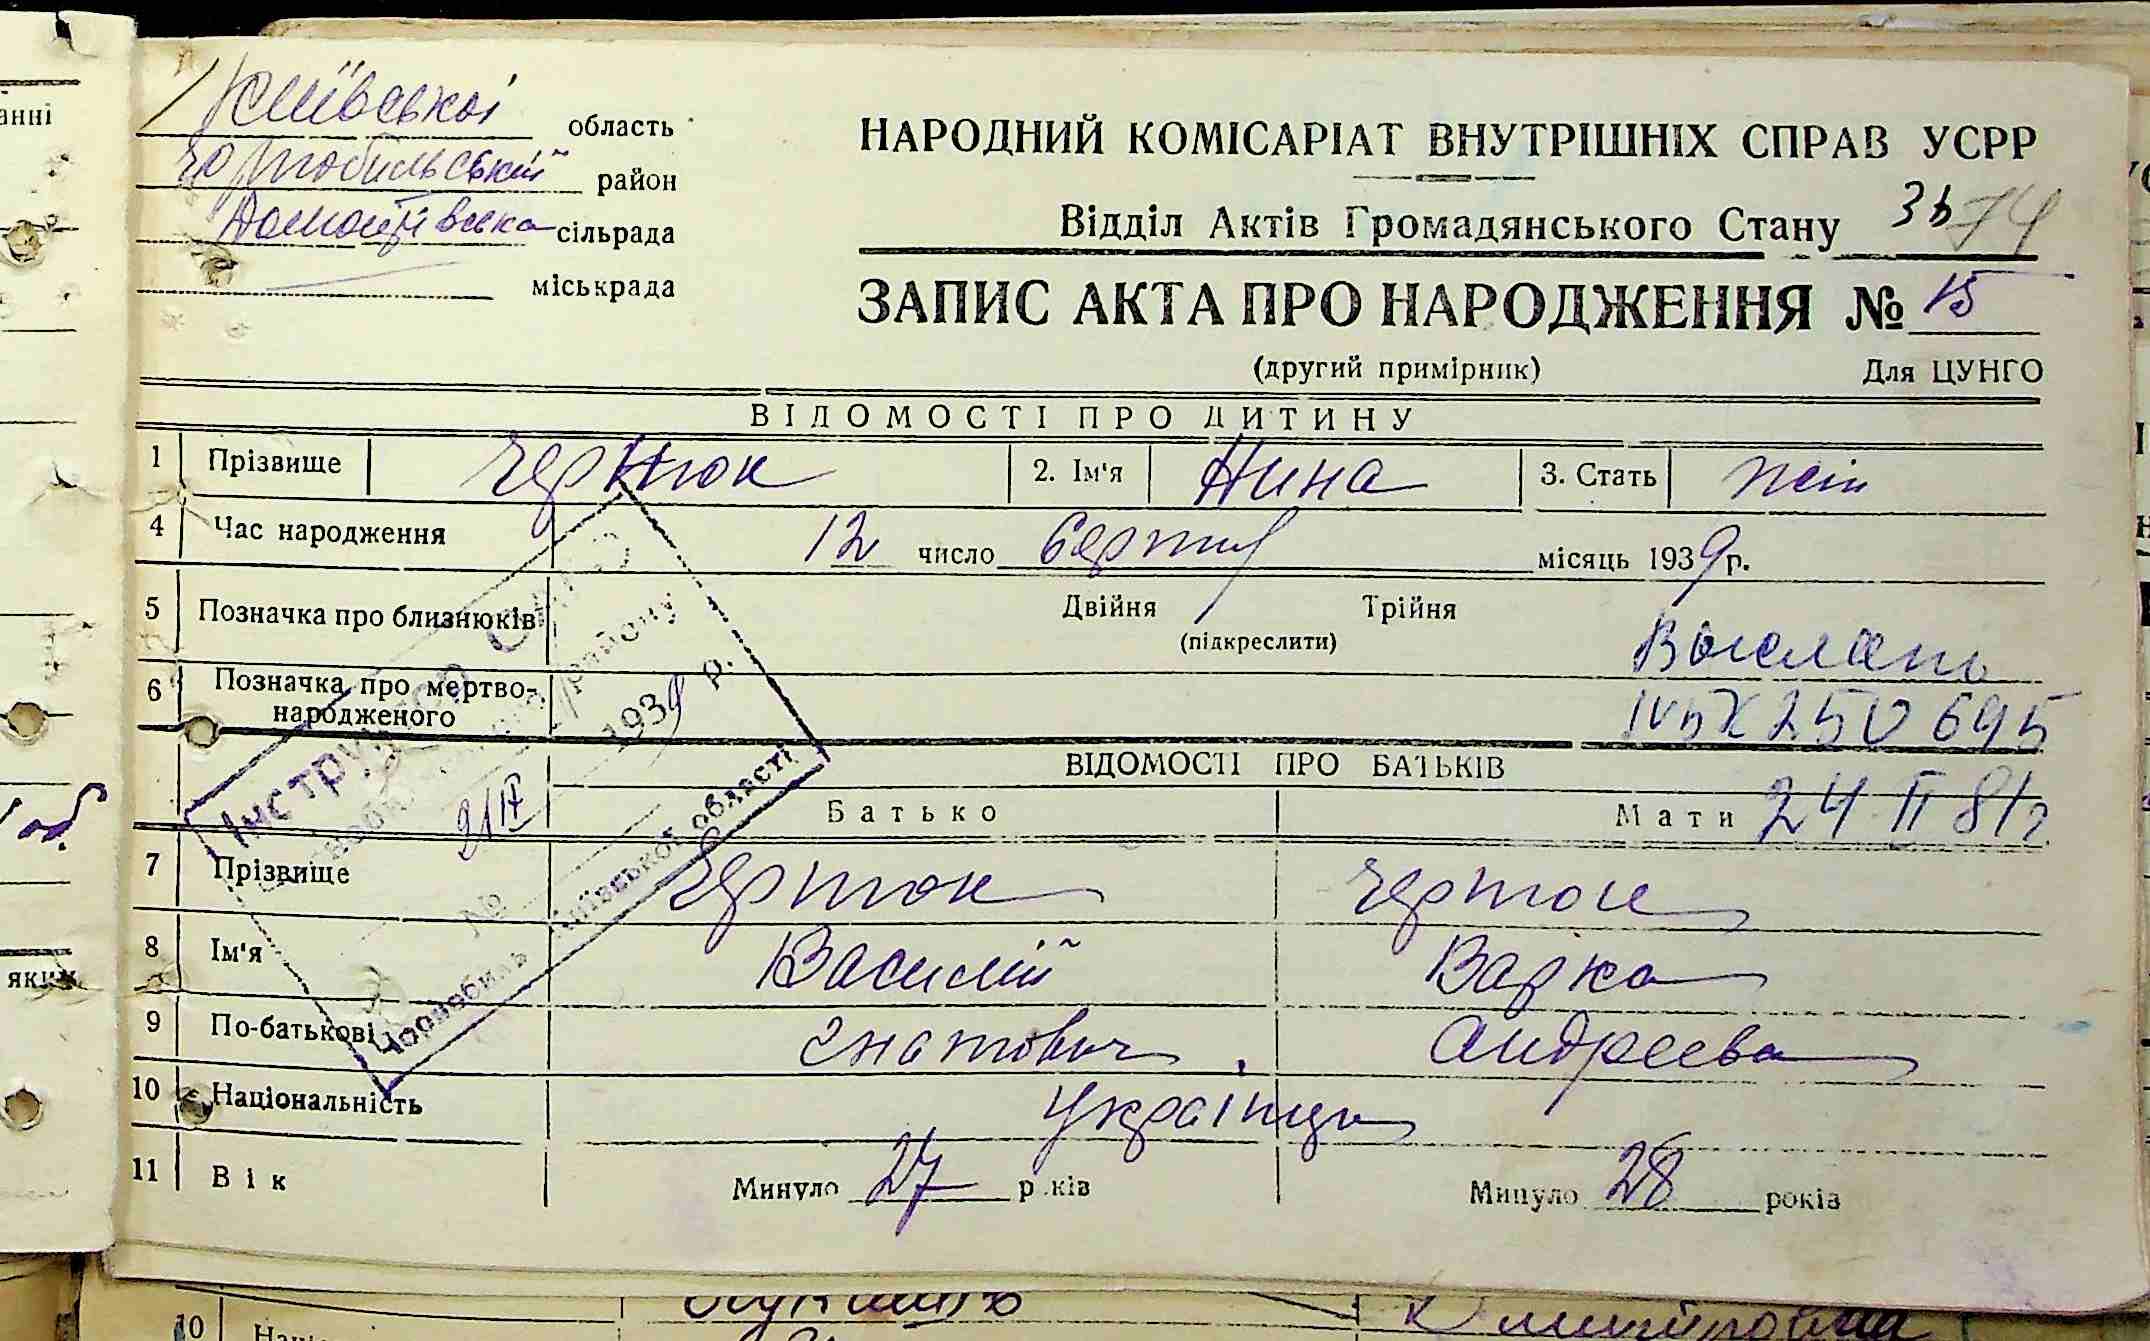 Київської область
Чорнобильський район
сільрада
міськрада
НАРОДНИЙ КОМІСАРІАТ ВНУТРІШНІХ СПРАВ УСРР
Відділ Актів Громадянського Стану 74
ЗАПИС АКТА ПРО НАРОДЖЕННЯ № 15
(другий примірник) Для ЦУНГО
ВІДОМОСТІ ПРО ДИТИНУ
1 Прізвище 2. Ім'я Нина 3. Стать жін
4 Час народження 12 число Серпня місяць 1939 р.
5 Позначка про близнюків Двійня Трійня
(підкреслити)
Выслать
6 Позначка про мертво-
народженого
250695
ВІДОМОСТІ ПРО БАТЬКІВ
Батько Мати 24 II 81г
7 Прізвище
8 Ім'я Василій Варка
9 По-батькові Гнатович Андреевна
10 Національність Українци
11 Вік Минуло 27 років Минуло 28 років
Інструктор
району
1939 р.
№
Чорнобиль Київської області
анні
яким
10